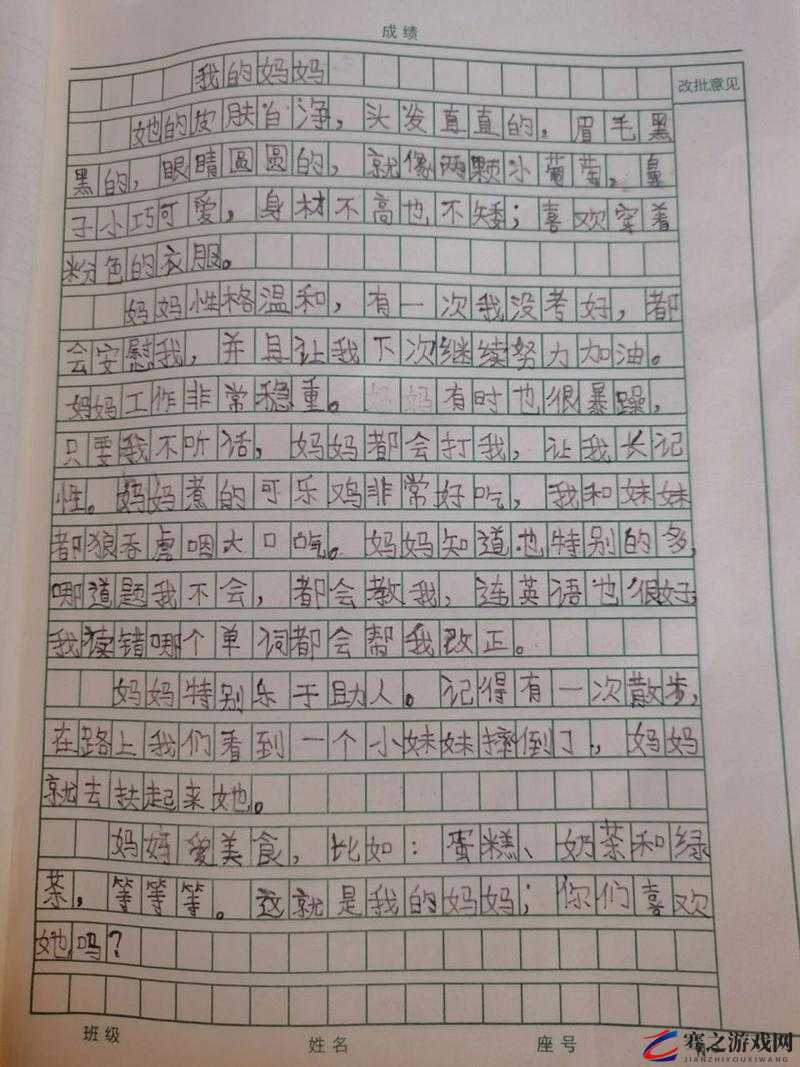 成绩
改批意见
我的妈妈
她的皮肤白净，头发直直的，眉毛黑
黑的，眼睛圆圆的，就像两颗小葡萄，鼻
子小巧可爱，身材不高也不矮；喜欢穿着
粉色的衣服。
妈妈性格温和，有一次我没考好，都
会安慰我，并且让我下次继续努力加油。
妈妈工作非常稳重。妈妈有时也很暴躁，
只要我不听话，妈妈都会打我，让我长记
性。妈妈煮的可乐鸡非常好吃，我和妹妹
都狼吞虎咽大口吃。妈妈知道也特别的多，
哪道题我不会，都会教我，连英语也很好，
我读错哪个单词都会帮我改正。
妈妈特别乐于助人。记得有一次散步，
在路上我们看到一个小妹妹摔倒了，妈妈
就去扶起来她。
妈妈爱美食，比如：蛋糕、奶茶和绿
茶，等等等。这就是我的妈妈；你们喜欢
她吗？
班级 姓名 座号
骞之游戏网
JIANZHIYOUXIWANG